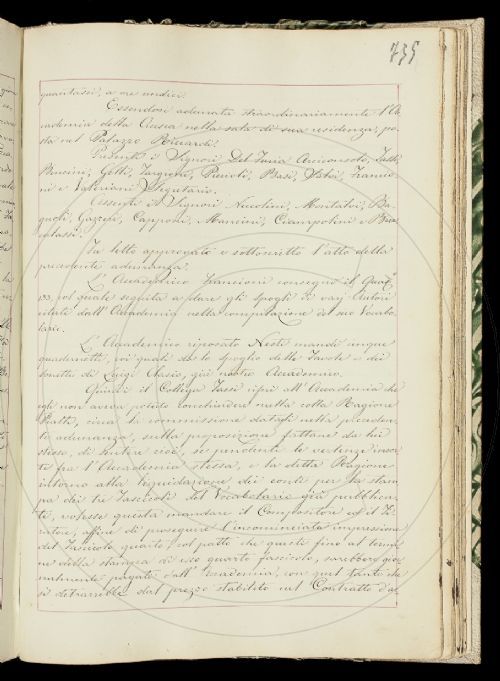 735
quantasei, a ore undici.
Essendosi adunata straordinariamente l'Ac
cademia della Crusca nella sala di sua residenza, po
sta nel Palazzo Riccardi:
Presenti i Signori Del Furia Arciconsolo, Tassi,
Bencini, Gelli, Targioni, Piccioli, Basi, Salvi, Francio
ni e Valeriani Segretario.
Assenti i Signori Niccolini, Montalvi, Ba
gnoli, Gazzeri, Capponi, Mannini, Ciampolini e Bru
calassi.
Fu letto approvato e sottoscritto l'atto della
precedente adunanza.
L'Accademico Francioni consegnò il Quad.
133, col quale seguita a dare gli spogli di varj Autori
citati dall'Accademia nella compilazione del suo Vocabo
lario.
L'Accademico riposato Nesti mandò cinque
quadernetti, coi quali dà lo spoglio delle Favole e dei
Sonetti di Luigi Clasio, già nostro Accademico.
Quindi il Collega Tassi riferì all'Accademia che
egli non aveva potuto conchiudere nella colla Ragione
Piatti, circa la commissione datagli nella preceden
te adunanza, sulla proposizione fattane da lui
stesso, di sentire cioè, se pendente le vertenze insor
te fra l'Accademia stessa, e la detta Ragione
intorno alla liquidazione dei conti per la stam
pa dei tre Fascicoli del Vocabolario già pubblica
ti, volesse questa mandare il Compositore ed il Ti
ratore, affine di proseguire l'incominciata impressione
del Fascicolo quarto, col patto che questi fino al termi
ne della stampa di esso quarto fascicolo, sarebbero gior
nalmente pagati dall'Accademia, con quel tanto che
si detrarrebbe dal prezzo stabilito nel Contratto d'ac